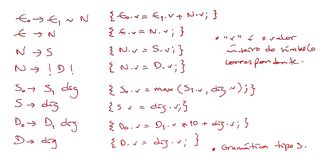 E₀ → E₁ ~ N { E₀.v = E₁.v + N.v; }
E → N { E.v = N.v; }
N → S { N.v = S.v; }
N → ! D ! { N.v = D.v; }
S₀ → S₁ dig { S₀.v = max (S₁.v, dig.v); }
S → dig { S.v = dig.v; }
D₀ → D₁ dig { D₀.v = D₁.v * 10 + dig.v; }
D → dig { D.v = dig.v; }
• "v" é o valor
inteiro do símbolo
correspondente.
• Gramática tipo S.